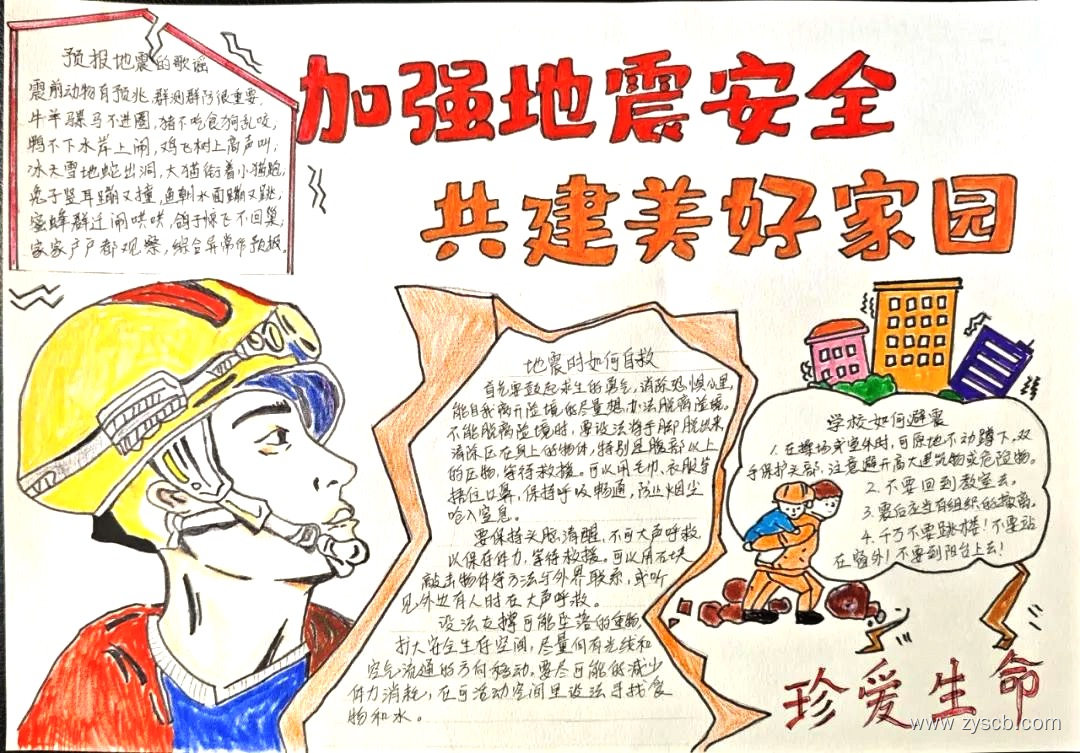 加强地震安全
共建美好家园
预报地震的歌谣
震前动物有预兆,群测群防很重要,
牛羊骡马不进圈,猪不吃食狗乱咬,
鸭不下水岸上闹,鸡飞树上高声叫;
冰天雪地蛇出洞,大猫衔着小猫跑,
兔子竖耳蹦又撞,鱼刺水面蹦又跳,
蜜蜂群迁闹哄哄,鸽子惊飞不回巢;
家家户户都观察,综合异常作预报。
地震时如何自救
首先要鼓起求生的勇气,消除恐惧心里,
能自我离开险境的尽量想办法脱离险境。
不能脱离险境时,要设法将手脚脱出来
消除压在身上的物体,特别是腹部以上
的压物,等待救援。可以用毛巾、衣服等
捂住口鼻,保持呼吸畅通,防止烟尘
呛入窒息。
要保持头脑清醒,不可大声呼救,
以保存体力,等待救援。可以用石块
敲击物体等方法与外界联系,或听
见外边有人时在大声呼救。
设法支撑可能坠落的重物,
扩大安全生存空间,尽量向有光线和
空气流通的方向移动,要尽可能的减少
体力消耗,在可活动空间里设法寻找食
物和水。
学校如何避震
1.在操场或室外时,可原地不动蹲下,双
手保护头部,注意避开高大建筑物或危险物。
2.不要回到教室去。
3.震后应当有组织的撤离。
4.千万不要跳楼!不要站
在窗外!不要到阳台上去!
珍爱生命
www.zyscb.com